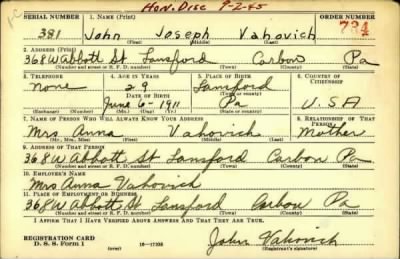 Hon. Disc 9-2-45
SERIAL NUMBER 1. NAME (Print) ORDER NUMBER
381 John Joseph Vahovich 784
(First) (Middle) (Last)
2. ADDRESS (Print)
368 W Abbott St Lansford Carbon Pa
(Number and street or R. F. D. number) (Town) (County) (State)
3. TELEPHONE 4. AGE IN YEARS 5. PLACE OF BIRTH 6. COUNTRY OF CITIZENSHIP
none 29 Lansford
DATE OF BIRTH (Town or county)
June 6-1911 Pa U.S.A
(Exchange) (Number) (Mo.) (Day) (Yr.) (State or country)
7. NAME OF PERSON WHO WILL ALWAYS KNOW YOUR ADDRESS 8. RELATIONSHIP OF THAT PERSON
Mrs Anna Vahovich Mother
(Mr., Mrs., Miss) (First) (Middle) (Last)
9. ADDRESS OF THAT PERSON
368 W Abbott St Lansford Carbon Pa
(Number and street or R. F. D. number) (Town) (County) (State)
10. EMPLOYER'S NAME
Mrs Anna Vahovich
11. PLACE OF EMPLOYMENT OR BUSINESS
368 W Abbott St Lansford Carbon Pa
(Number and street or R. F. D. number) (Town) (County) (State)
I AFFIRM THAT I HAVE VERIFIED ABOVE ANSWERS AND THAT THEY ARE TRUE.
REGISTRATION CARD
D. S. S. Form 1 16-17105 John Vahovich
(Registrant's signature)